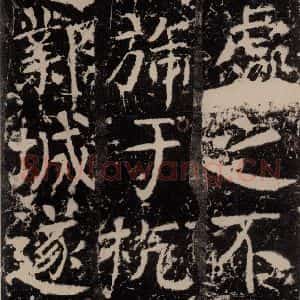 處之不
旆于
鄴城遂
Shufawang.CN